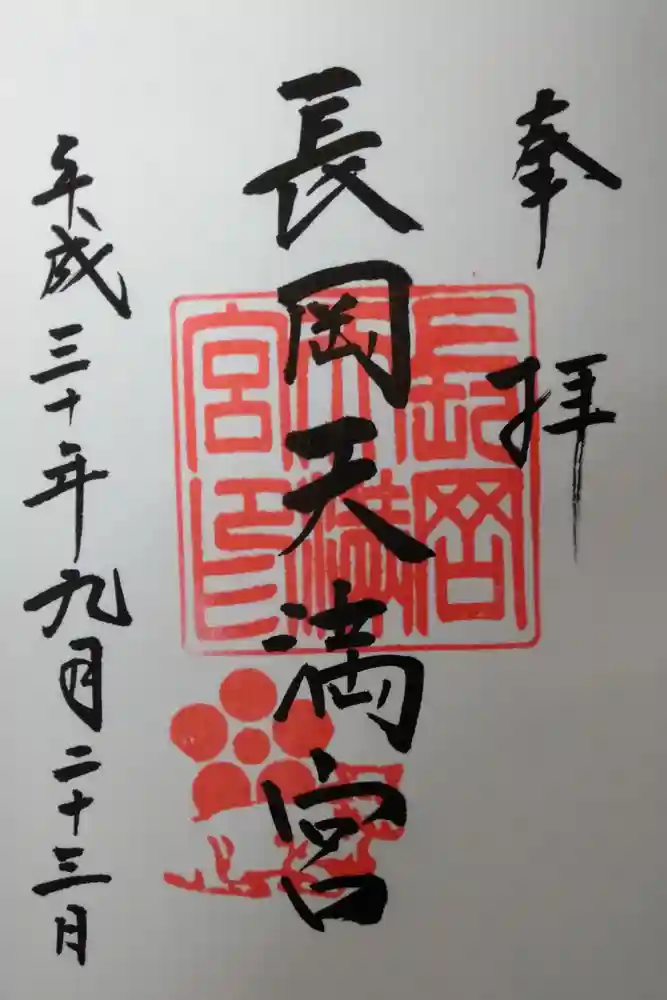 奉拝
長岡天満宮
長岡
天満
宮印
平成三十年九月二十三日